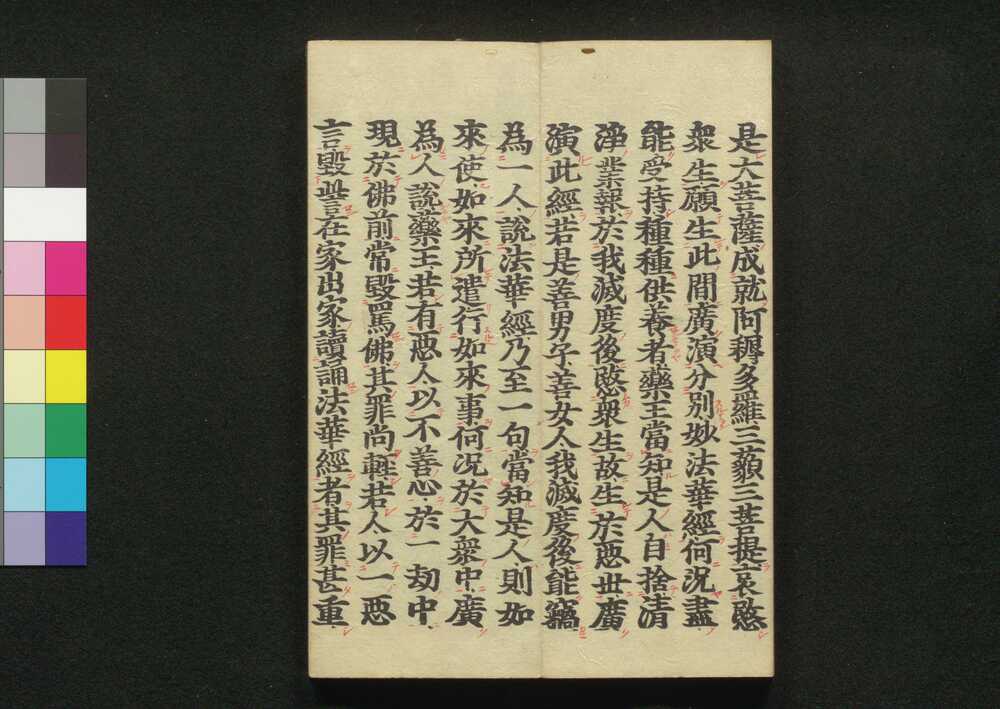 是大菩薩成就阿耨多羅三藐三菩提哀愍
衆生願生此間廣演分別妙法華經何況盡
能受持種種供養者藥王當知是人自捨清
淨業報於我滅度後愍衆生故生於惡世廣
演此經若是善男子善女人我滅度後能竊
為一人說法華經乃至一句當知是人則如
來使如來所遣行如來事何況於大衆中廣
為人說藥王若有惡人以不善心於一劫中
現於佛前常毀罵佛其罪尚輕若人以一惡
言毀訾在家出家讀誦法華經者其罪甚重